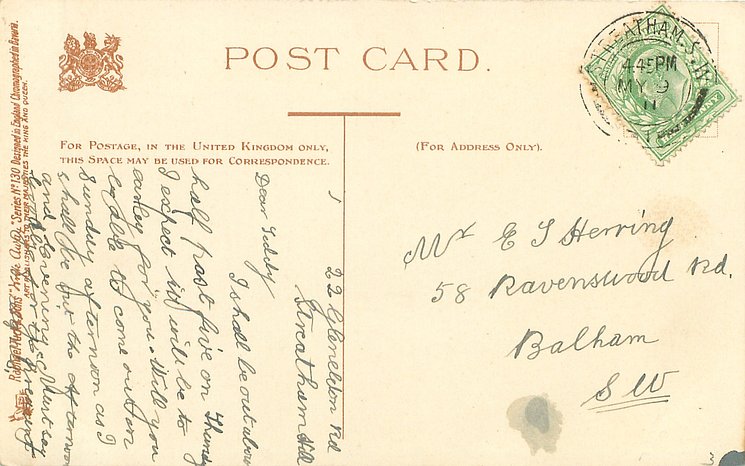 POST CARD.
FOR POSTAGE, IN THE UNITED KINGDOM ONLY,
THIS SPACE MAY BE USED FOR CORRESPONDENCE.
(FOR ADDRESS ONLY).
STREATHAM S.W.
4.45 PM
MY 9
11
Mr E S Herring
58 Ravenswood Rd.
Balham
S W
22 Gleneldon Rd
Streatham Hill
Dear Teddy
I shall be out about
half past five on Thurs
I expect it will be to
early for you. Will you
be able to come out on
Sunday afternoon as I
shall be out the afternoon
and evening. Must say
"Wide Awake" Series No 130 Designed in England Chromographed in Bavaria.
ART PUBLISHERS TO THEIR MAJESTIES THE KING AND QUEEN.